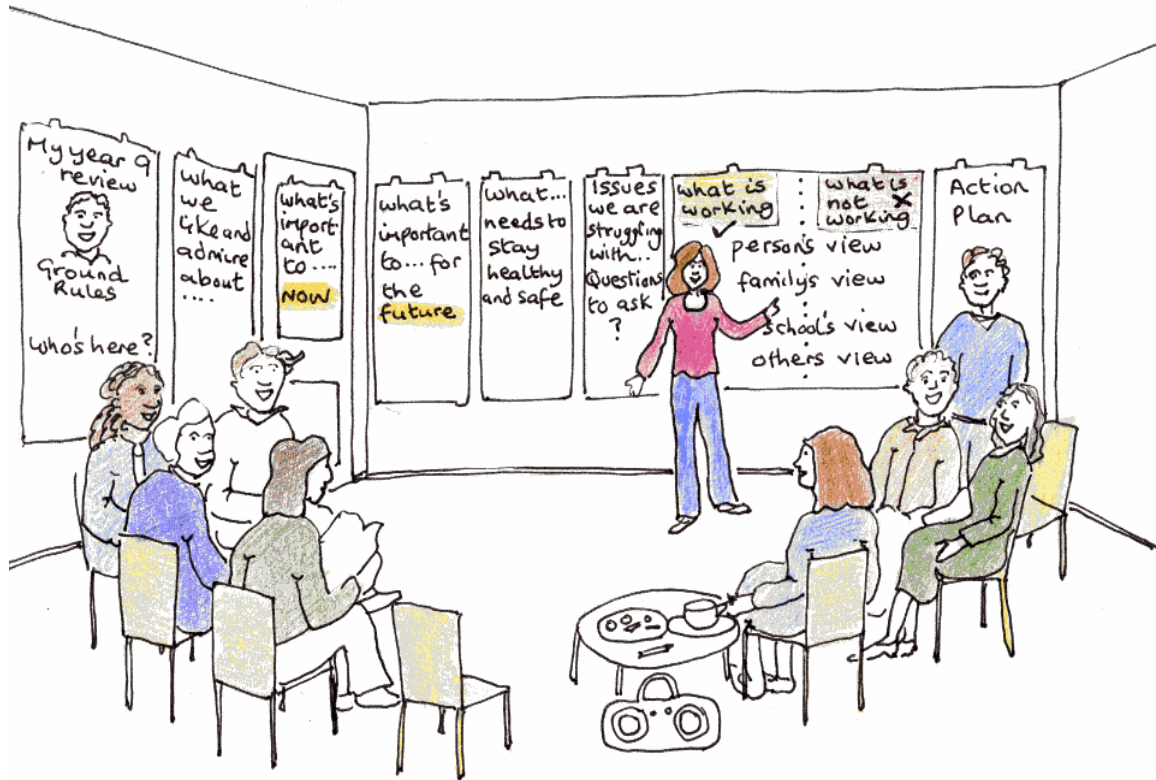 My year 9
review
Ground
Rules
Who's here?
what
we
like and
admire
about
....
what's
import
ant
to ....
NOW
what's
important
to... for
the
future
what...
needs to
stay
healthy
and safe
Issues
we are
struggling
with..
Questions
to ask
?
what is
working
✓
what is
not
working
X
person's view
family's view
school's view
others view
Action
Plan